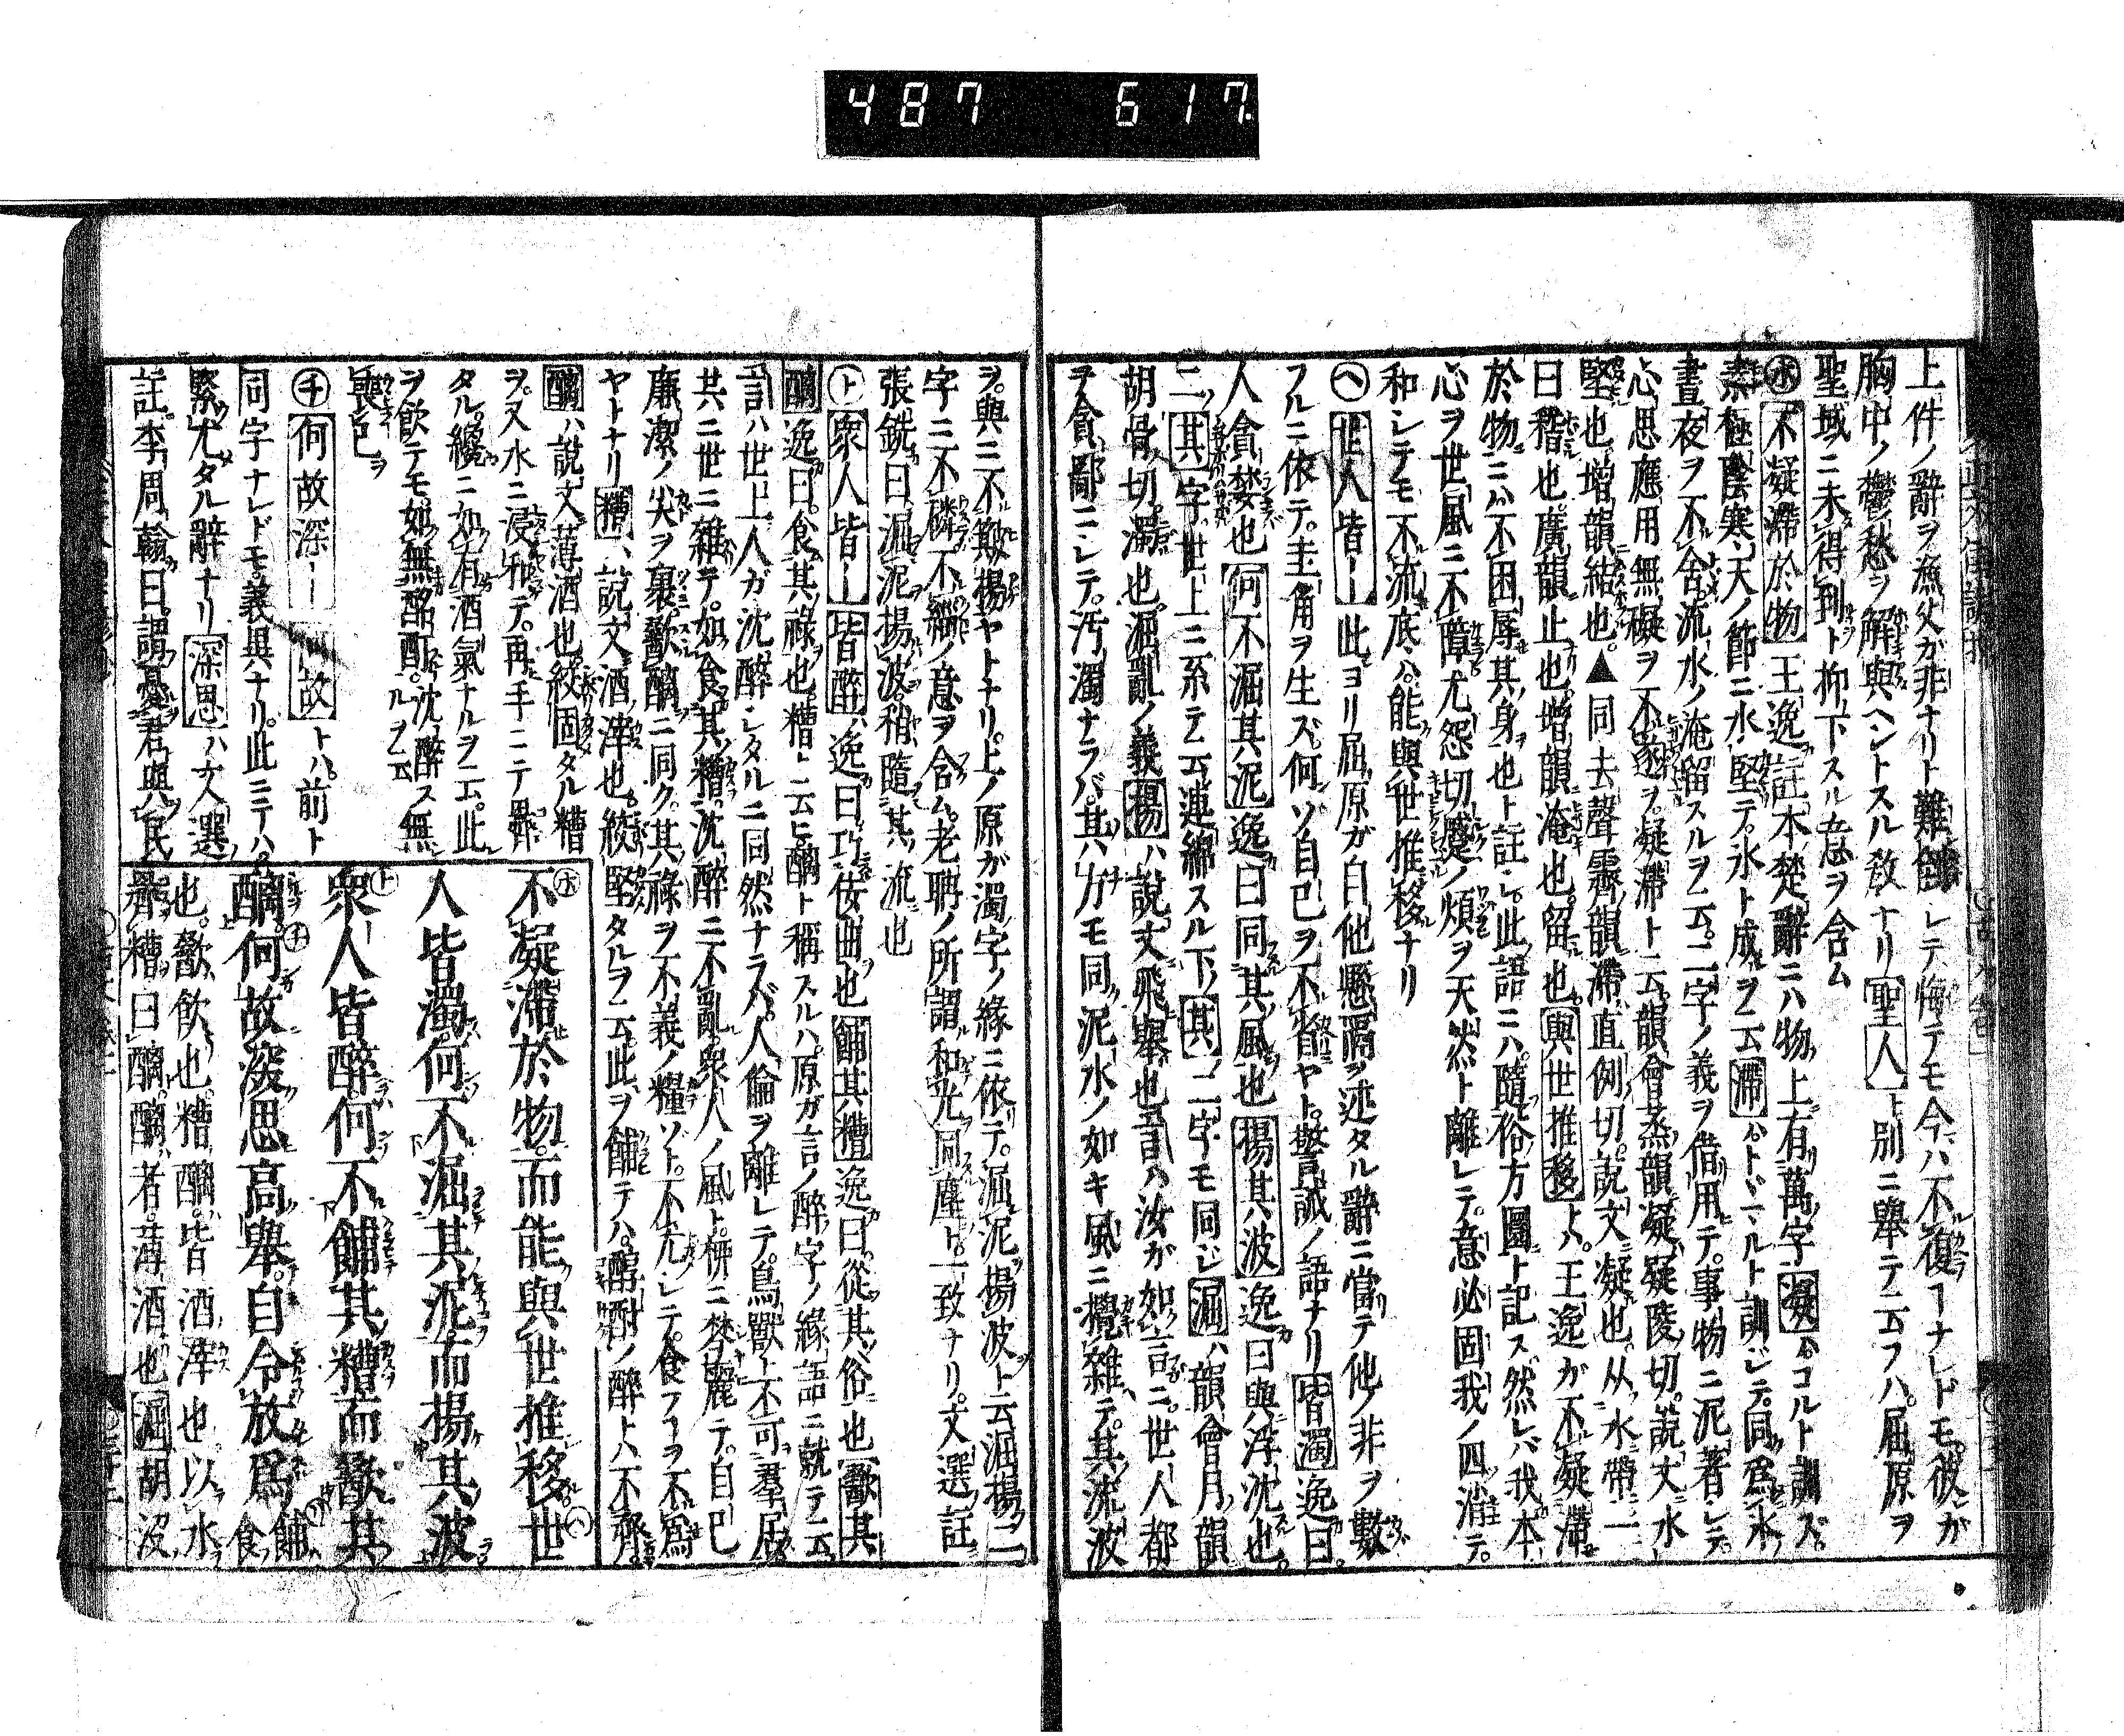 487 617
上件ノ辭ヲ漁父ガ非ナリト難シテ悔テモ今ハ不復ヿナレドモ彼ガ
胸中ノ鬱愁ヲ解與ヘントスル教ナリ聖人ト別ニ舉テ云フハ屈原ヲ
聖域ニ未得到ト抑下スル意ヲ含ム
ホ不凝滞於物王逸註本楚辭ニハ物ノ上有萬字凝ハコルト訓ズ
素極陰寒天ノ節ニ水堅テ氷ト成ヲ云滞ハトドマルト訓ジテ同為氷
晝夜ヲ不舍流水ノ淹留スルヲ云二字ノ義ヲ借用テ事物ニ泥著シテ
心思應用無礙ヲ不遂ヲ凝滞ト云韻會蒸韻凝疑陵切説文水
堅也増韻結也▲同去聲霽韻滞直例切説文凝也从水帶一
曰稽也廣韻止也増韻淹也留也與世推移トハ王逸ガ不凝滞
於物ニハ不困辱其身也ト註シ此語ニハ隨俗方圓ト記ス然レバ我本
心ヲ世風ニ不障尤怨切ノ煩ヲ天然ト離レテ意必固我ノ四消テ
和シテモ不流底ハ能與世推移ナリ
ヘ世人皆ー此ヨリ屈原ガ自他懸隔ヲ述タル辭ニ當テ他ノ非ヲ數
フルニ依テ圭角ヲ生ズ何ソ自己ヲ不省ヤト警誡ノ語ナリ皆濁逸曰
人貪婪也何不淈其泥逸曰同其風也揚其波逸曰與浮沈也
二ノ其字世上ニ系テ云連綿スル下ノ其ノ二字モ同ジ淈ハ韻會月韻
胡骨切濁也淈亂ノ義揚ハ説文飛舉也言ハ汝ガ如言ニ世人都
テ貪鄙ニシテ汚濁ナラバ其ノ方モ同泥水ノ如キ風ニ攪雜テ其流波
ヲ與ニ不簸揚ヤトナリ上ノ原ガ濁字ノ緣ニ依テ淈泥揚波ト云淈揚二
字ニ不磷不緇ノ意ヲ含ム老聃ノ所謂和光同塵ト一致ナリ文選註
張銑曰淈泥揚波稍隨其流也
ト衆人皆ー皆醉ハ逸曰巧佞曲也餔其糟逸曰從其俗也歠其
醨逸曰食其祿也糟ト云ヒ醨ト稱スルハ原ガ言ノ醉字ノ緣語ニ就テ云
言ハ世上人ガ沈醉シタルニ同然ナラバ人倫ヲ離レテ鳥獸ト不可羣居
共ニ世ニ雜テ如食其糟沈醉ニ不亂衆人ノ風ト テ自己
廉潔ノ尖ヲ裹歠醨ニ同ク其祿ヲ不義ノ糧ソト不尤シテ食フヿヲ不為
ヤトナリ糟ハ説文酒滓也絞堅タルヲ云此ヲ餔テハ醇酎ノ醉トハ不齊
醨ハ説文薄酒也絞固タル糟
ヲ又水ニ浸和テ再手ニテ
タル纔ニ如有酒氣ナルヲ云此
ヲ飲テモ如無酩酊沈醉ス無
喪己ヲ
チ何故深ー何故トハ前ト
同字ナレドモ義與ナリ此ニテハ
緊尤タル辭ナリ深思ハ文選
註李周翰曰謂憂君與民
ホ不凝滞於物而能與世推移ヘ世
人皆濁何不淈其泥而揚其波
ト衆人皆醉何不餔其糟而歠其
醨チ何故深思高舉自令放爲餔食
也歠飲也糟醨皆酒滓也以水
糟曰醨醨者薄酒也淈胡沒